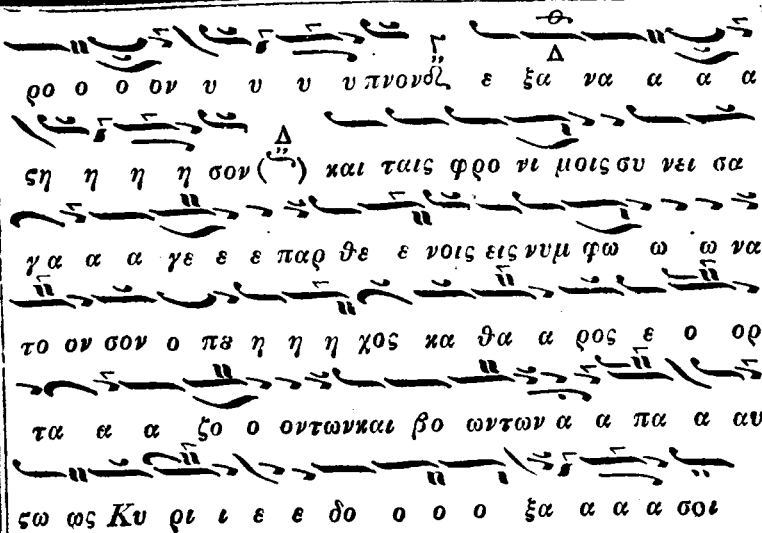 ρο ο ο ον υ υ υ υ πνον ε ξα να α α α
ςη η η η σον ( ) και ταις φρο νι μοις συ νει σα
γα α α α γε ε ε παρ θε ε νοις εις νυμ φω ω ω να
το ον σον ο πȣ η η η χος κα θα α ρος ε ο ορ
τα α α ζο ο οντων και βο ωντων α α πα α αυ
ςω ως Κυ ρι ι ε ε δο ο ο ο ξα α α α σοι